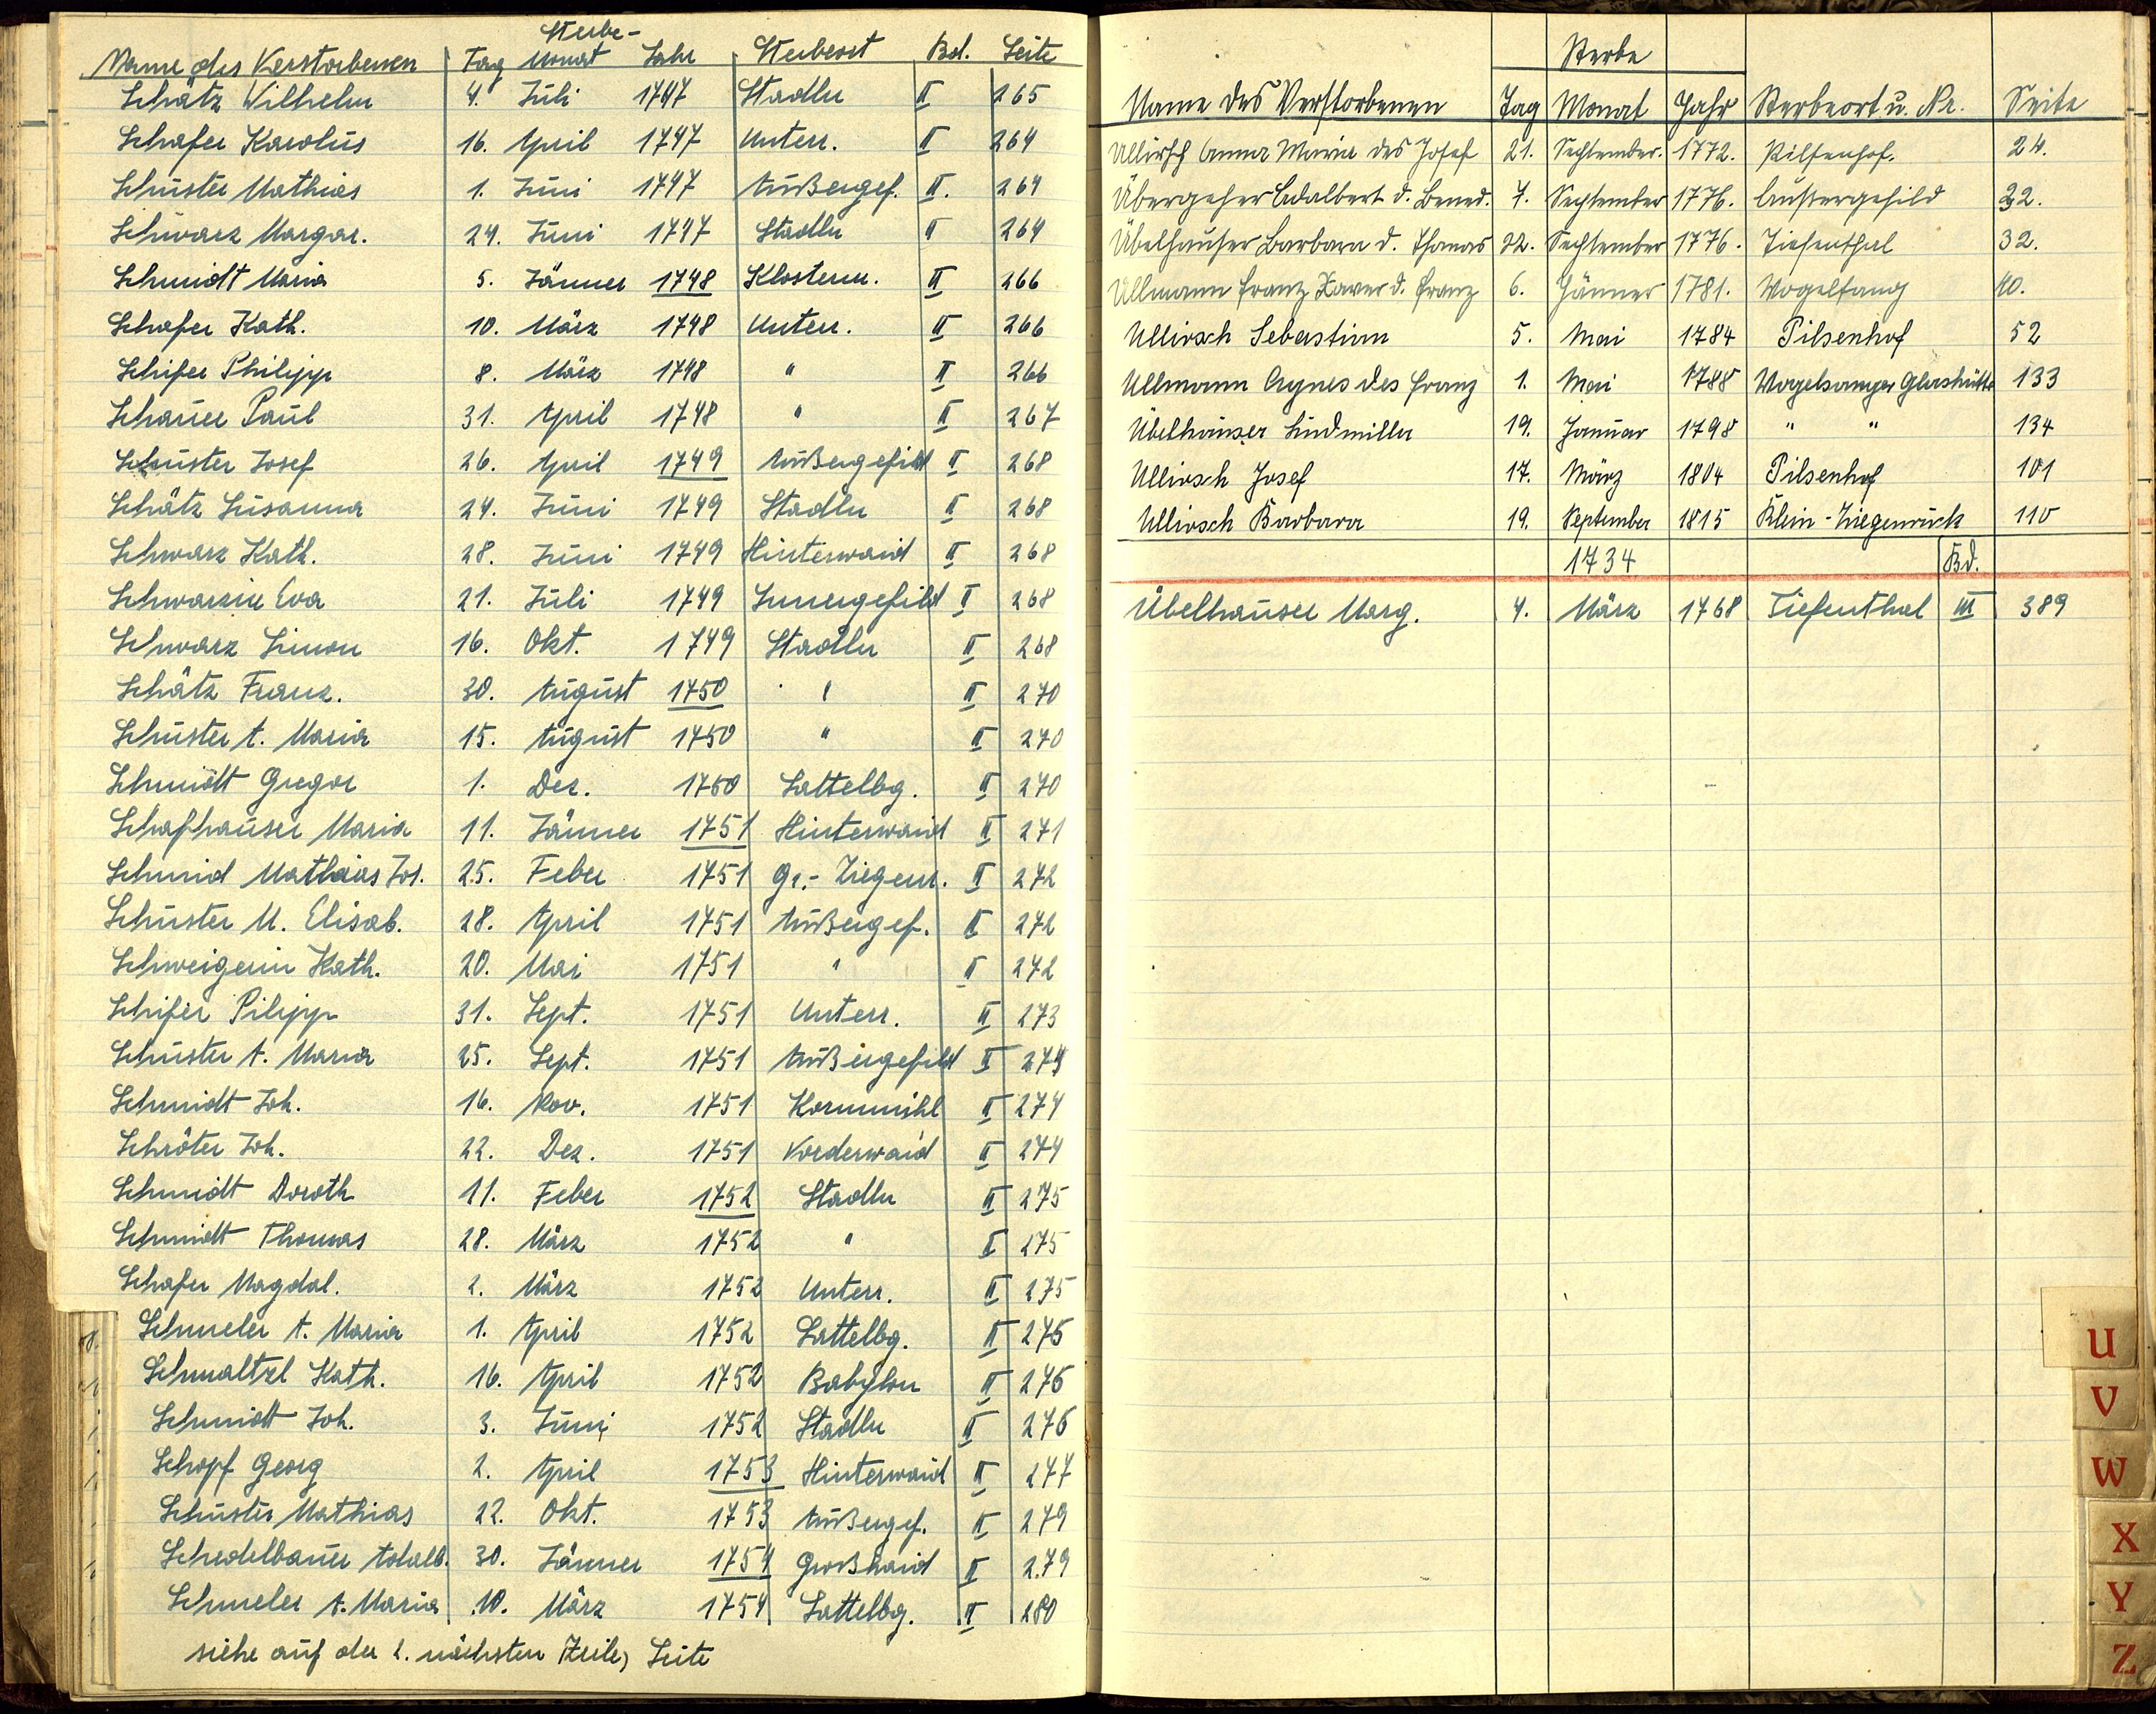 Sterbe-
Name des Verstorbenen Tag Monat Jahr Sterbeort Bd. Seite
Schätz Wilhelm 4. Juli 1747 Stadln II 265
Schafer Karolus 16. April 1747 Unterr. II 264
Schuster Mathias 1. Juni 1747 Außergef. II. 264
Schwarz Margar. 24. Juni 1747 Stadln II 264
Schmidt Maria 5. Jänner 1748 Klosterm. II 266
Schafer Kath. 10. März 1748 Unterr. II 266
Schifer Philipp 8. März 1748 " II 266
Schauer Paul 31. April 1748 " II 267
Schuster Josef 26. April 1749 Außergefild II 268
Schätz Susanna 24. Juni 1749 Stadln II 268
Schwarz Kath. 28. Juni 1749 Hinterwaid II 268
Schwarzin Eva 21. Juli 1749 Innergefild II 268
Schwarz Simon 16. Okt. 1749 Stadln II 268
Schätz Franz. 30. August 1750 " II 270
Schuster A. Maria 15. August 1750 " II 270
Schmidt Gregor 1. Dez. 1750 Sattelbg. II 270
Schafhauser Maria 11. Jänner 1751 Hinterwaid II 271
Schmid Mathias Jos. 25. Feber 1751 Gr.- Ziegenr. II 272
Schuster M. Elisab. 28. April 1751 Außergef. II 272
Schweigerin Kath. 20. Mai 1751 " II 272
Schifer Pilipp 31. Sept. 1751 Unterr. II 273
Schuster A. Maria 25. Sept. 1751 Außergefild II 274
Schmidt Joh. 16. Nov. 1751 Kornmühl II 274
Schröter Joh. 22. Dez. 1751 Vorderwaid II 274
Schmidt Doroth 11. Feber 1752 Stadln II 275
Schmidt Thomas 28. März 1752 " II 275
Schafer Magdal. 2. März 1752 Unterr. II 275
Schmeler A. Maria 1. April 1752 Sattelbg. II 275
Schmaltzl Kath. 16. April 1752 Babylon II 276
Schmidt Joh. 3. Juni 1752 Stadln II 276
Schopf Georg 2. April 1753 Hinterwaid II 277
Schuster Mathias 22. Okt. 1753 Außergef. II 279
Schedelbauer Adalb. 30. Jänner 1754 Großhaid II 279
Schmeler A. Maria 10. März 1754 Sattelbg. II 280
siehe auf der 2. nächsten (Zeile) Seite
Sterbe
Name des Verstorbenen Tag Monat Jahr Sterbeort u. Nr. Seite
Ullirsch Anna Maria des Josef 21. September. 1772. Pilsenhof. 24.
Übergeher Adalbert d. Bened. 7. September 1776. Außergefild 32.
Übelhauser Barbara d. Thomas 22. September 1776. Tiefenthal 32.
Ullmann Franz Xaver d. Franz 6. Jänner 1781. Vogelsang 40.
Ullirsch Sebastian 5. Mai 1784 Pilsenhof 52
Ullmann Agnes des Franz 1. Mai 1788 Vogelsanger Glashütte 133
Übelhauser Ludmilla 19. Januar 1798 " " 134
Ullirsch Josef 17. März 1804 Pilsenhof 101
Ullirsch Barbara 19. September 1815 Klein-Ziegenruck 110
1734 Bd.
Übelhauser Marg. 4. März 1768 Tiefenthal III 389
U
V
W
X
Y
Z